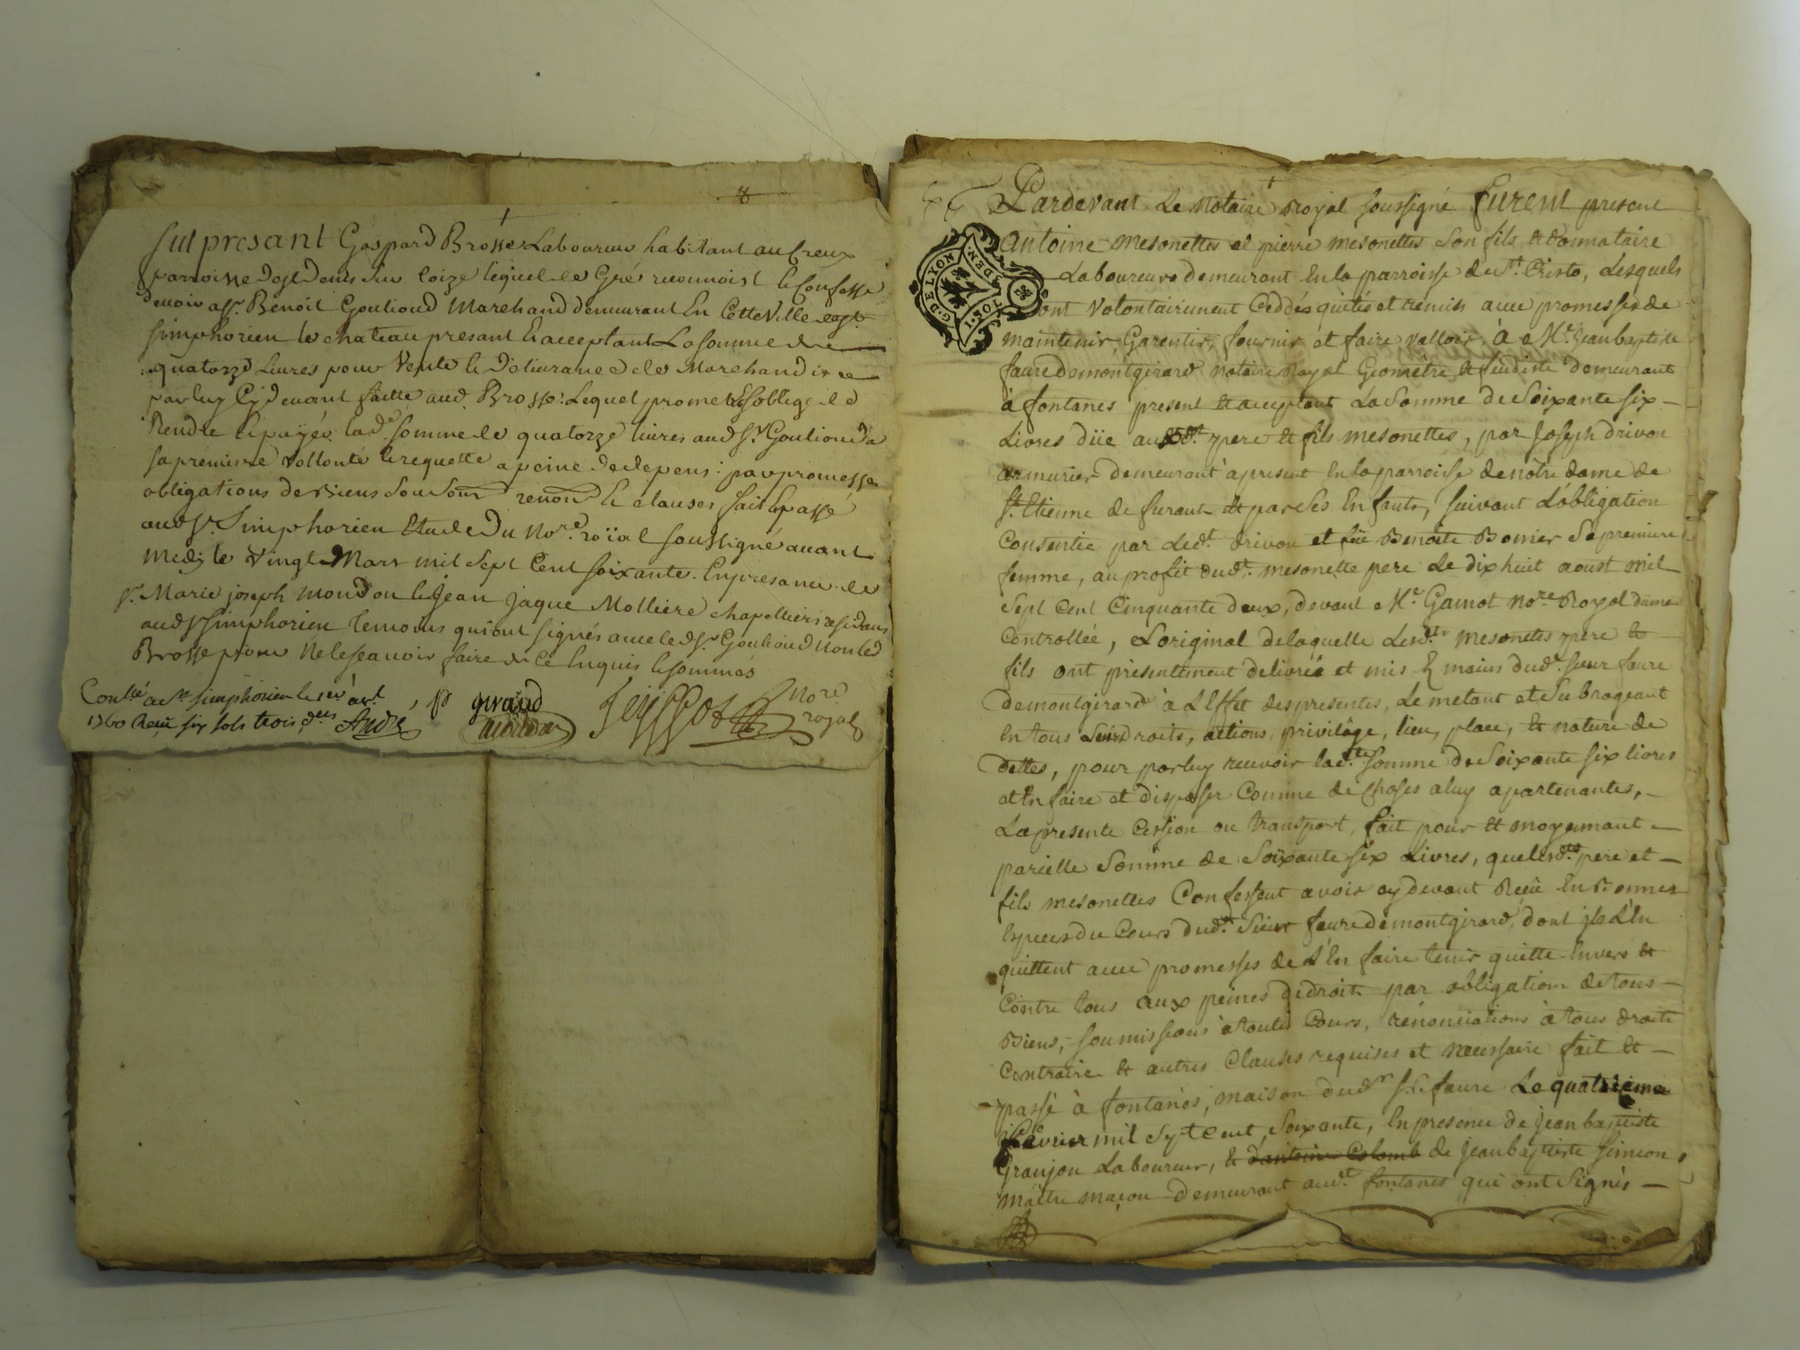 Fut present Gaspard Brosse Laboureur habitant au Creux
parroisse de st Denis sur Coize lequel de Gré reconnoist & confesse
devoir a sr. Benoit Goutioud Marchand demeurant En Cette Ville de st
simphorien le chateau present & acceptant La somme de
quatorze Livres pour Vente & Delivrance de Marchandise
par luy Cy devant faitte aud. Brosse. Lequel promet & soblige de
Rendre & payér lade. somme de quatorze livres aud sr. Goutioud a
sa premiere vollonté & requette a peine de depens: par promesses
obligations de Biens Soum. renon. & clauses fait & passé
aud sr. Simphorien Etude Du Nore. roïal soussigné avant
Midy le Vingt Mars mil sept Cent soixante. En presance de
sr. Marie joseph mondon & Jean Jaque Molliere chapelliers
aud st simphorien temoins qui ont signés avec led sr. Goutioud non led
Brosse pour ne le scavoir faire de Ce Enquis & sommés
Conllé a st simphorien le 1er avl
1760 Reçu six sols trois ders André
giraud
mondon
Nore
royal
Pardevant Le Notaire Royal soussigné Furent present
G. DE LYON
DEN.
Antoine mesonettes et pierre mesonettes son fils & donnataire
Laboureurs demeurant En la parroisse de st. Cristo, Lesquels
ont Volontairement Ceddés quités et remis avec promesses de
maintenir, Garentir, fournir et faire valloir, à Me. Jean baptiste
faure demontgirard notaire Royal Geomêtre & feudiste demeurant
à fontanes present & acceptant La Somme de Soixante six
Livres düe ausdt. pere & fils mesonettes, par Joseph drivon
armurier demeurant à present En la parroisse de nôtre dame de
st. Etienne de furant & par ses Enfants, suivant L'obligation
Consentie par Ledt. drivon et füe Benoite Bonier Sa premiere
femme, au profit dudt. mesonette pere Le dixhuit aoust mil
Sept Cent Cinquante deux, devant Me Gamot Nore Royal dument
Controllée, L'original de laquelle Lesdts mesonetes pere &
fils ont présentement delivréé et mis Es mains dudt. sieur faure
demontgirard à L'Effet des presentes, Le metant et Subrogeant
En tous Leurs droits, actions, privilége, lieu, place, & nature de
dettes, pour par luy recevoir ladte. Somme de Soixante six livres
et En faire et disposer Comme de choses a luy apartenantes,
La presente Cession ou transport, fait pour & moyennant
parielle Somme de Soixante six Livres, que lesdts pere et
fils mesonettes Confessent avoir cy devant Reçüe En Bonnes
Especes du Cours dudt. Sieur faure demontgirard, dont ils L'En
quittent avec promesses de L'En faire tenir quitte Envers &
Contre tous aux peines de droit par obligation de tous
Biens, soumissions à toutes Cours, rénonciations à tous droits
Contraire & autres Clauses requises et necessaire fait &
passé à fontanés, maison dudt sr. faure Le quatrieme
fevrier mil Sept Cent Soixante, En presence de Jean baptiste
Granjon Laboureur, & d'antoine Colomb de Jean baptiste simeon,
maître maçon demeurant audt. fontanes qui ont Signés